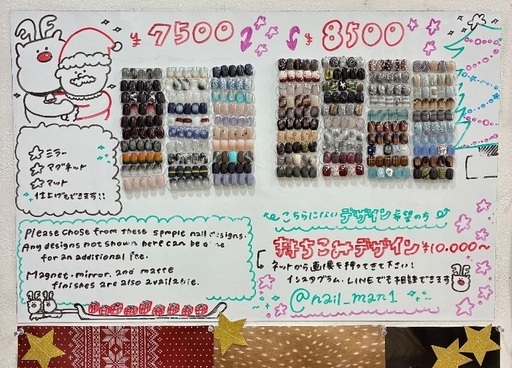 ¥7500
¥8500
☆ミラー
☆マグネット
☆マット
仕上げもできます!!
Please chose from these sample nail designs.
Any designs not shown here can be done
for an additional fee.
Magnet, mirror, and matte
finishes are also available.
こちらにないデザイン希望の方
持ちこみデザイン¥10.000〜
ネットから画像を持ってきて下さい!
インスタグラム・LINEでも相談できます
@nail_man1